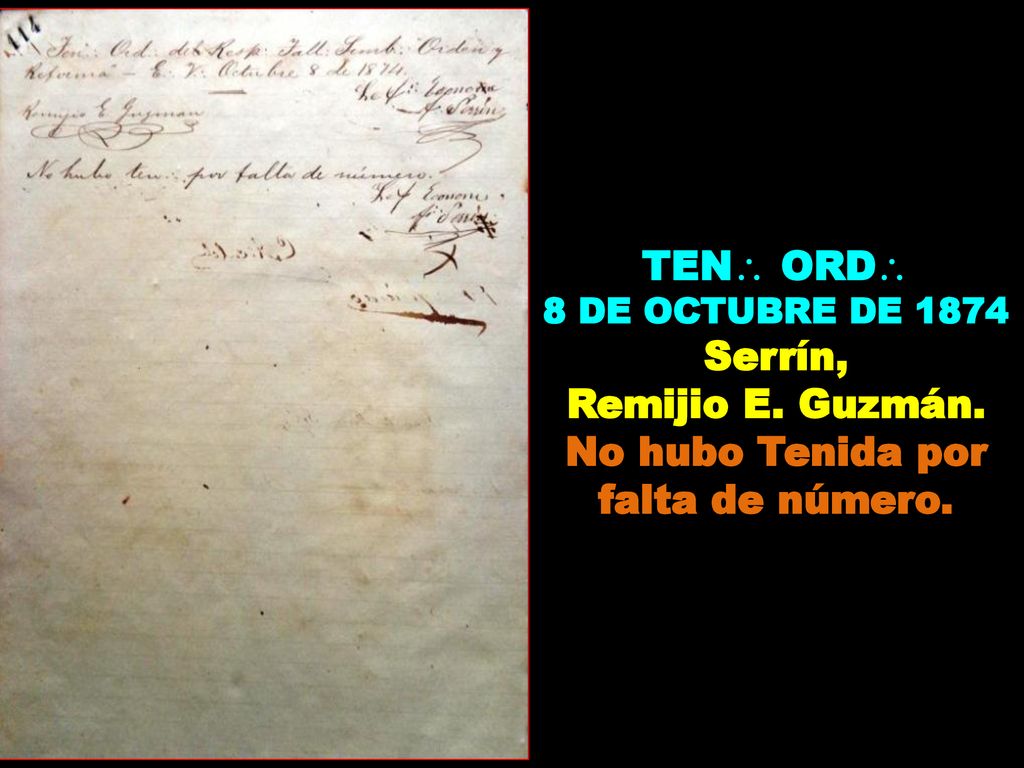 114
Ten∴ Ord∴ del Resp∴ Tall∴ Simb∴ "Orden y
Reforma" – E∴ V∴ Octubre 8 de 1874.
Remijio E Guzman
No hubo ten∴ por falta de número.
TEN∴ ORD∴
8 DE OCTUBRE DE 1874
Serrín,
Remijio E. Guzmán.
No hubo Tenida por
falta de número.